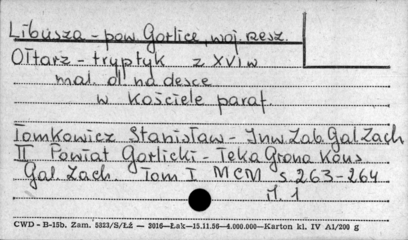 Libusza - pow Gorlice, woj. Rzesz.
Ołtarz - tryptyk z XVI w
mal. ol. na desce
w kościele paraf.
Tomkowicz Stanisław - Inw Zab Gal Zach
II Powiat Gorlicki - Teka Grona Kons
Gal. Zach. Tom I MCM s 263-264
il. 1
CWD - B-15b. Zam. 5323/S/Łż — 2016—Łak—15.11.56—4.000.000—Karton kl. IV A1/200 g